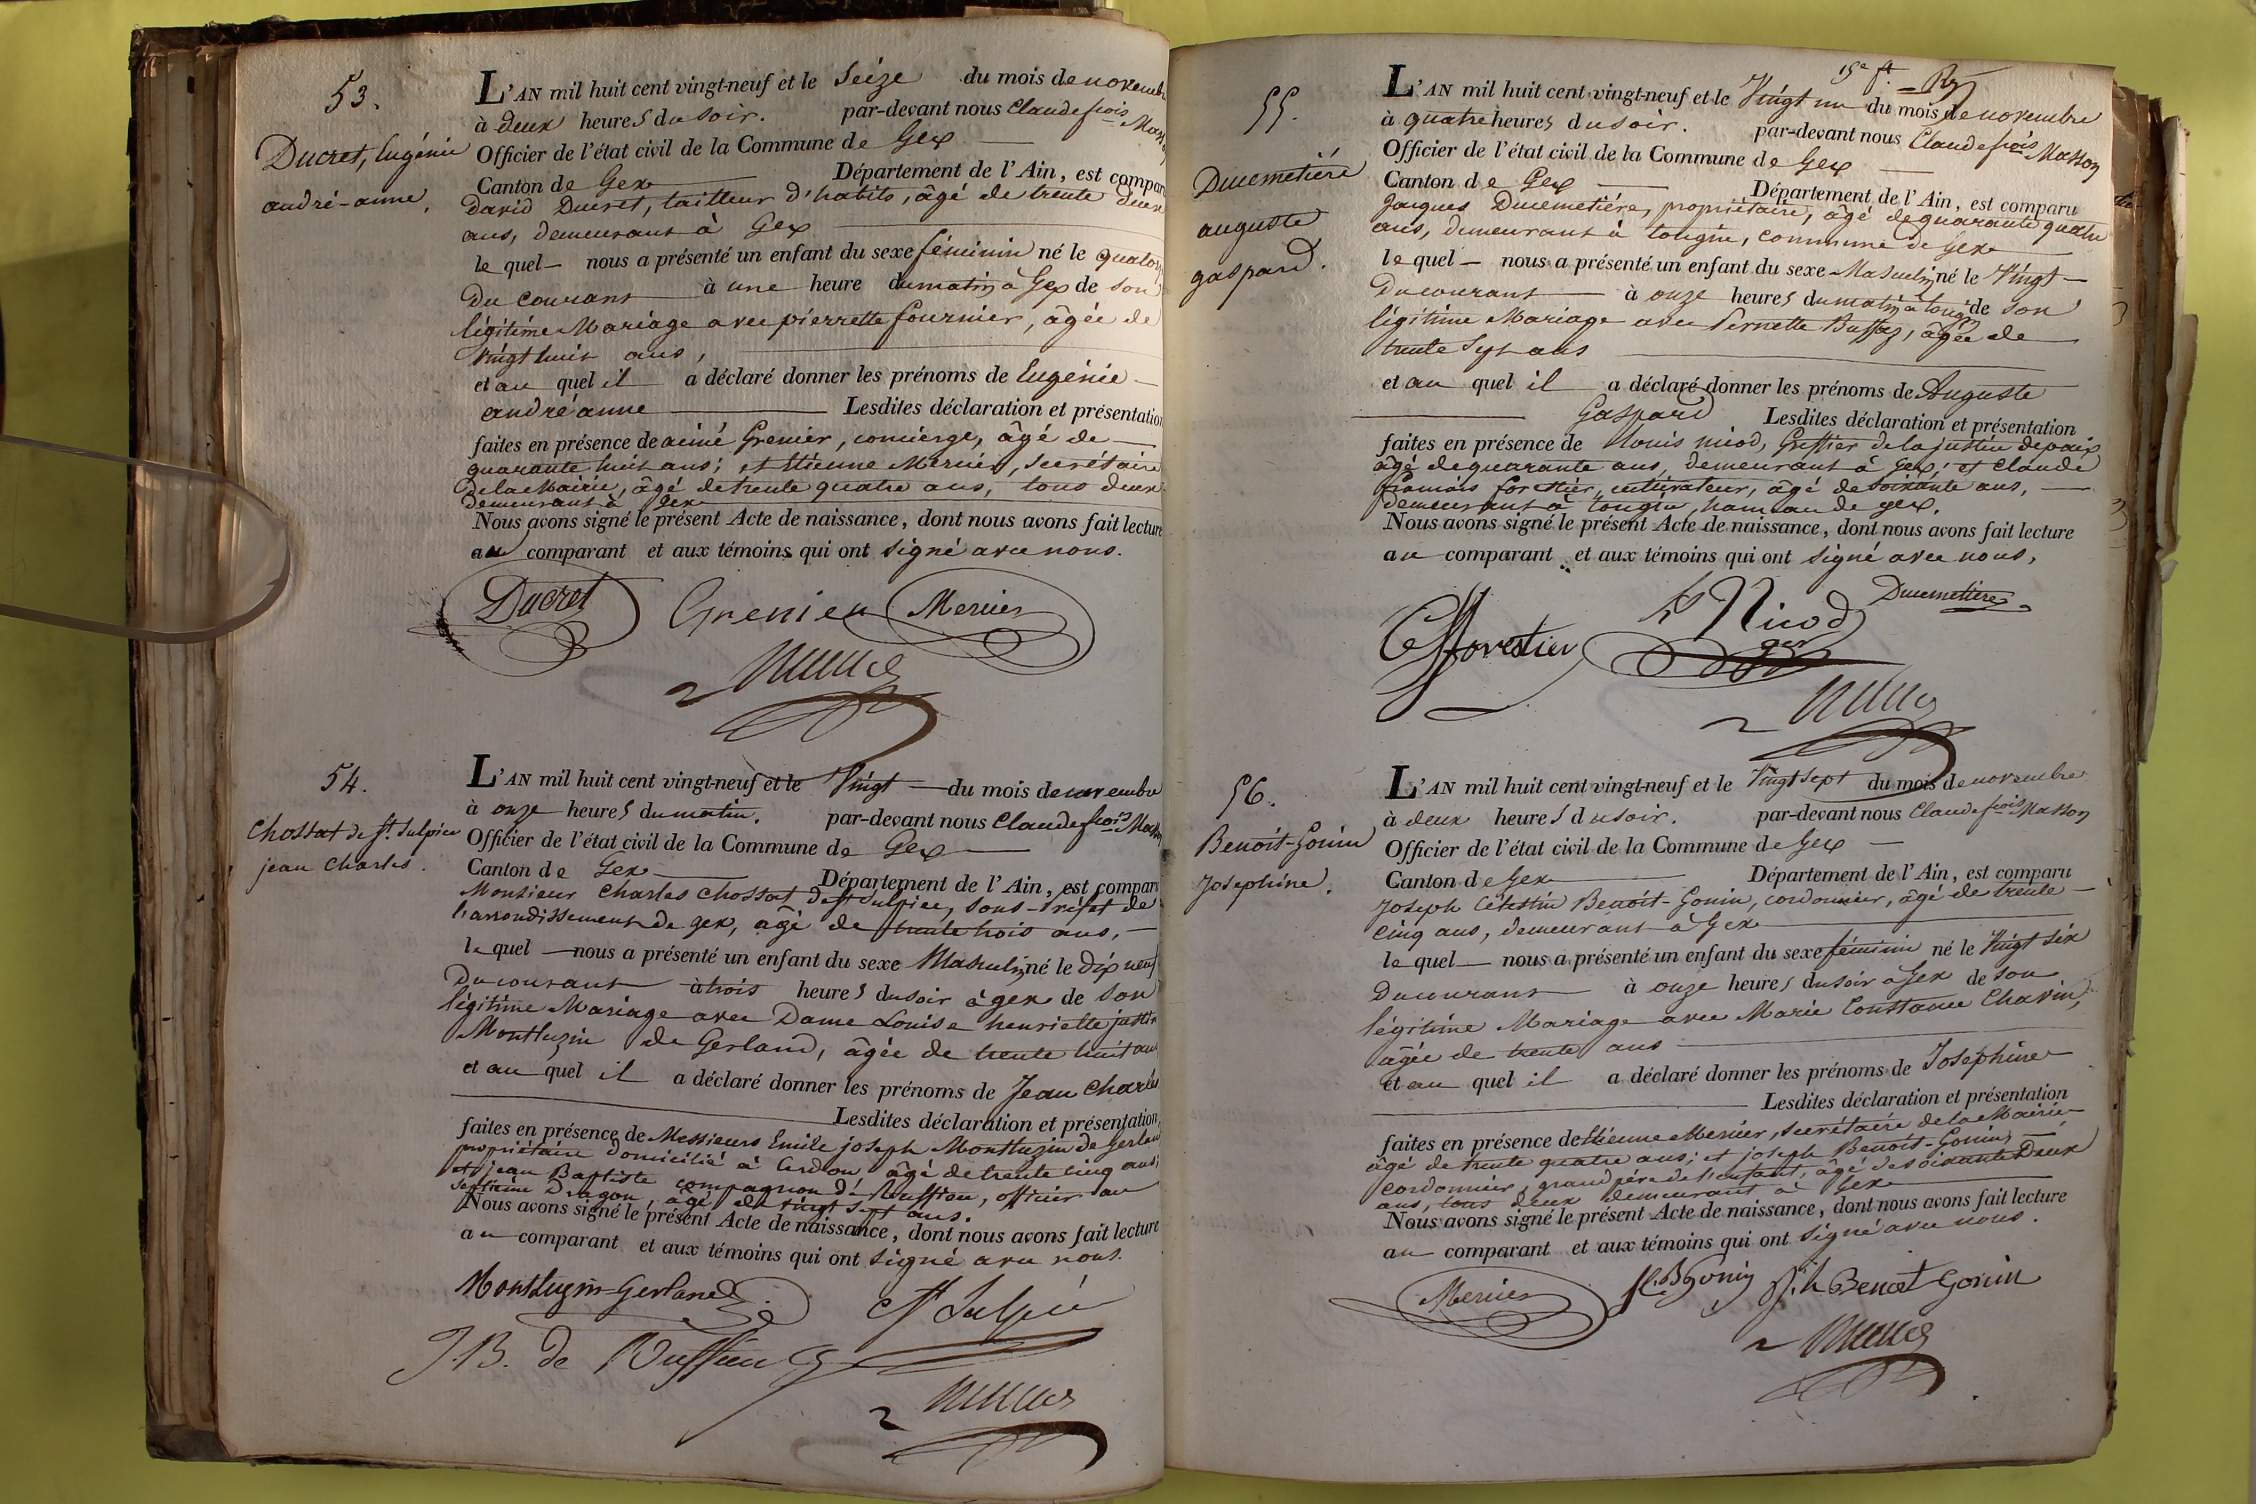 53.
Ducret, Eugénie
andré-anne,
L'AN mil huit cent vingt-neuf et le Seize du mois de novembre
à deux heures du soir. par-devant nous Claude fcois Masson
Officier de l'état civil de la Commune de Gex
Canton de Gex Département de l'Ain, est comparu
David Ducret, tailleur d'habits, âgé de trente deux
ans, demeurant à Gex
le quel nous a présenté un enfant du sexe féminin né le quatorze
du courant à une heure du matin à Gex de son
légitime Mariage avec pierrette fournier, âgée de
Vingt huit ans,
et au quel il a déclaré donner les prénoms de Eugénie
andré anne Lesdites déclaration et présentation
faites en présence de aimé Grenier, concierge, âgé de
quarante huit ans; et Etienne Mercier, Secrétaire
de la Mairie, âgé de trente quatre ans, tous deux
demeurant à Gex
Nous avons signé le présent Acte de naissance, dont nous avons fait lecture
au comparant et aux témoins qui ont signé avec nous.
Ducret Grenier Mercier
54.
Chossat de St. Sulpice
jean Charles.
L'AN mil huit cent vingt-neuf et le Vingt du mois de novembre
à onze heures du matin. par-devant nous Claude fcois Masson
Officier de l'état civil de la Commune de Gex
Canton de Gex Département de l'Ain, est comparu
Monsieur Charles Chossat de St Sulpice, Sous-Préfet de
l'arrondissement de gex, âgé de trente trois ans,
le quel nous a présenté un enfant du sexe Masculin né le dix neuf
du courant à trois heures du soir à gex de son
légitime Mariage avec Dame Louise henriette justine
Montluzin de Gerland, âgée de trente huit ans
et au quel il a déclaré donner les prénoms de Jean Charles
Lesdites déclaration et présentation
faites en présence de Messieurs Emile joseph Montluzin de Gerland
propriétaire domicilié à Cerdon âgé de trente cinq ans;
et jean Baptiste compagnon de Ruffieu, officier au
septième Dragon, âgé de vingt sept ans.
Nous avons signé le présent Acte de naissance, dont nous avons fait lecture
au comparant et aux témoins qui ont signé avec nous.
Montluzin-Gerland St Sulpice
J.B. de Ruffieu
55.
Ducimetière
auguste
gaspard.
L'AN mil huit cent vingt-neuf et le Vingt un du mois de novembre
à quatre heures du soir. par-devant nous Claude fcois Masson
Officier de l'état civil de la Commune de Gex
Canton de Gex Département de l'Ain, est comparu
Jacques Ducimetiére, propriétaire, âgé de quarante quatre
ans, demeurant à tougin, commune de Gex
le quel nous a présenté un enfant du sexe Masculin né le Vingt
du courant à onze heures du matin à toug. de son
légitime Mariage avec Pernette Buffaz, âgée de
trente Sept ans
et au quel il a déclaré donner les prénoms de Auguste
Gaspard Lesdites déclaration et présentation
faites en présence de louis nicod, Greffier de la justice de paix
âgé de quarante ans, demeurant à Gex; et Claude
françois forestier, cultivateur, âgé de soixante ans,
demeurant à tougin, hameau de gex.
Nous avons signé le présent Acte de naissance, dont nous avons fait lecture
au comparant et aux témoins qui ont signé avec nous,
Ducimetière
Forestier Nicod
56.
Benoit-Gonin
Josephine.
L'AN mil huit cent vingt-neuf et le Vingt Sept du mois de novembre
à deux heures du soir. par-devant nous Claude fcois Masson
Officier de l'état civil de la Commune de Gex
Canton de Gex Département de l'Ain, est comparu
Joseph Célestin Benoit-Gonin, cordonnier, âgé de trente
cinq ans, demeurant à Gex
le quel nous a présenté un enfant du sexe féminin né le Vingt six
du courant à onze heures du soir à Gex de son
légitime Mariage avec Marie Constance Chavin,
âgée de trente ans
et au quel il a déclaré donner les prénoms de Joséphine
Lesdites déclaration et présentation
faites en présence de Etienne Mercier, secrétaire de la Mairie
âgé de trente quatre ans; et joseph Benoit-Gonin,
cordonnier, grand père de l'enfant, âgé de soixante deux
ans, tous deux demeurant à Gex
Nous avons signé le présent Acte de naissance, dont nous avons fait lecture
au comparant et aux témoins qui ont signé avec nous.
Mercier Benoit Gonin